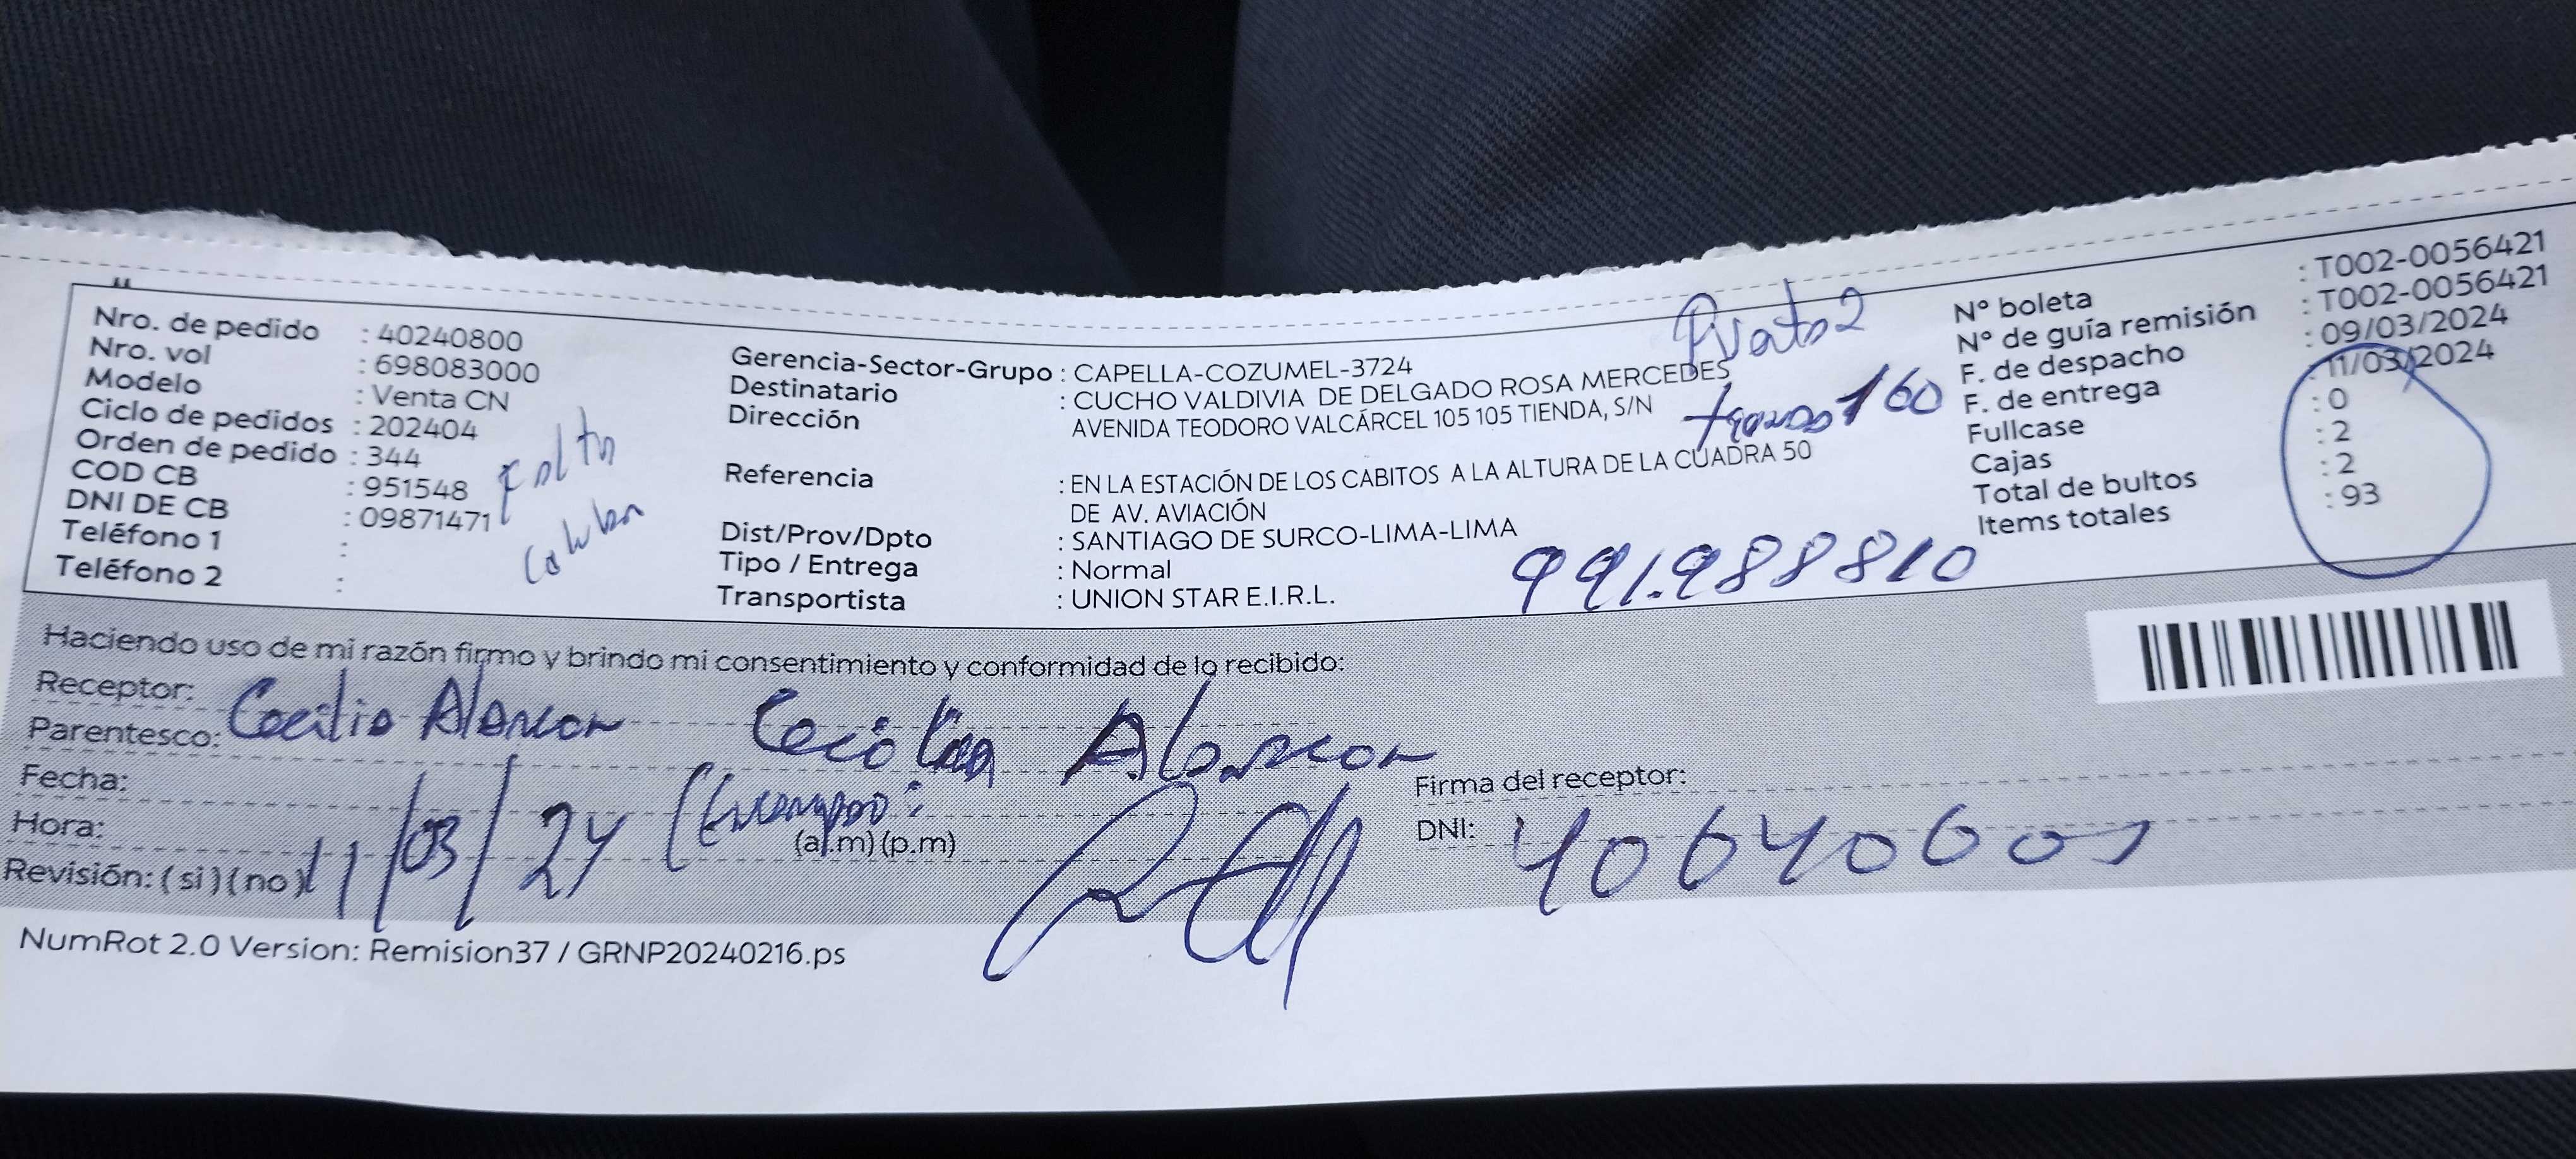 Nro. de pedido : 40240800
Nro. vol : 698083000
Modelo : Venta CN
Ciclo de pedidos : 202404
Orden de pedido : 344
COD CB : 951548
DNI DE CB : 09871471
Teléfono 1 :
Teléfono 2 :
Gerencia-Sector-Grupo : CAPELLA-COZUMEL-3724
Destinatario : CUCHO VALDIVIA DE DELGADO ROSA MERCEDES
Dirección : AVENIDA TEODORO VALCÁRCEL 105 105 TIENDA, S/N
Referencia : EN LA ESTACIÓN DE LOS CABITOS A LA ALTURA DE LA CUADRA 50
DE AV. AVIACIÓN
Dist/Prov/Dpto : SANTIAGO DE SURCO-LIMA-LIMA
Tipo / Entrega : Normal
Transportista : UNION STAR E.I.R.L.
160
991.988810
N° boleta : T002-0056421
N° de guía remisión : T002-0056421
F. de despacho : 09/03/2024
F. de entrega : 11/03/2024
Fullcase : 0
Cajas : 2
Total de bultos : 2
Items totales : 93
Haciendo uso de mi razón firmo y brindo mi consentimiento y conformidad de lo recibido:
Receptor: Cecilia Alarcon Cecilia Alarcon
Parentesco:
Fecha: 11/03/24
Hora: (a.m) (p.m)
Revisión: ( si ) ( no )
Firma del receptor:
DNI:
NumRot 2.0 Version: Remision37 / GRNP20240216.ps